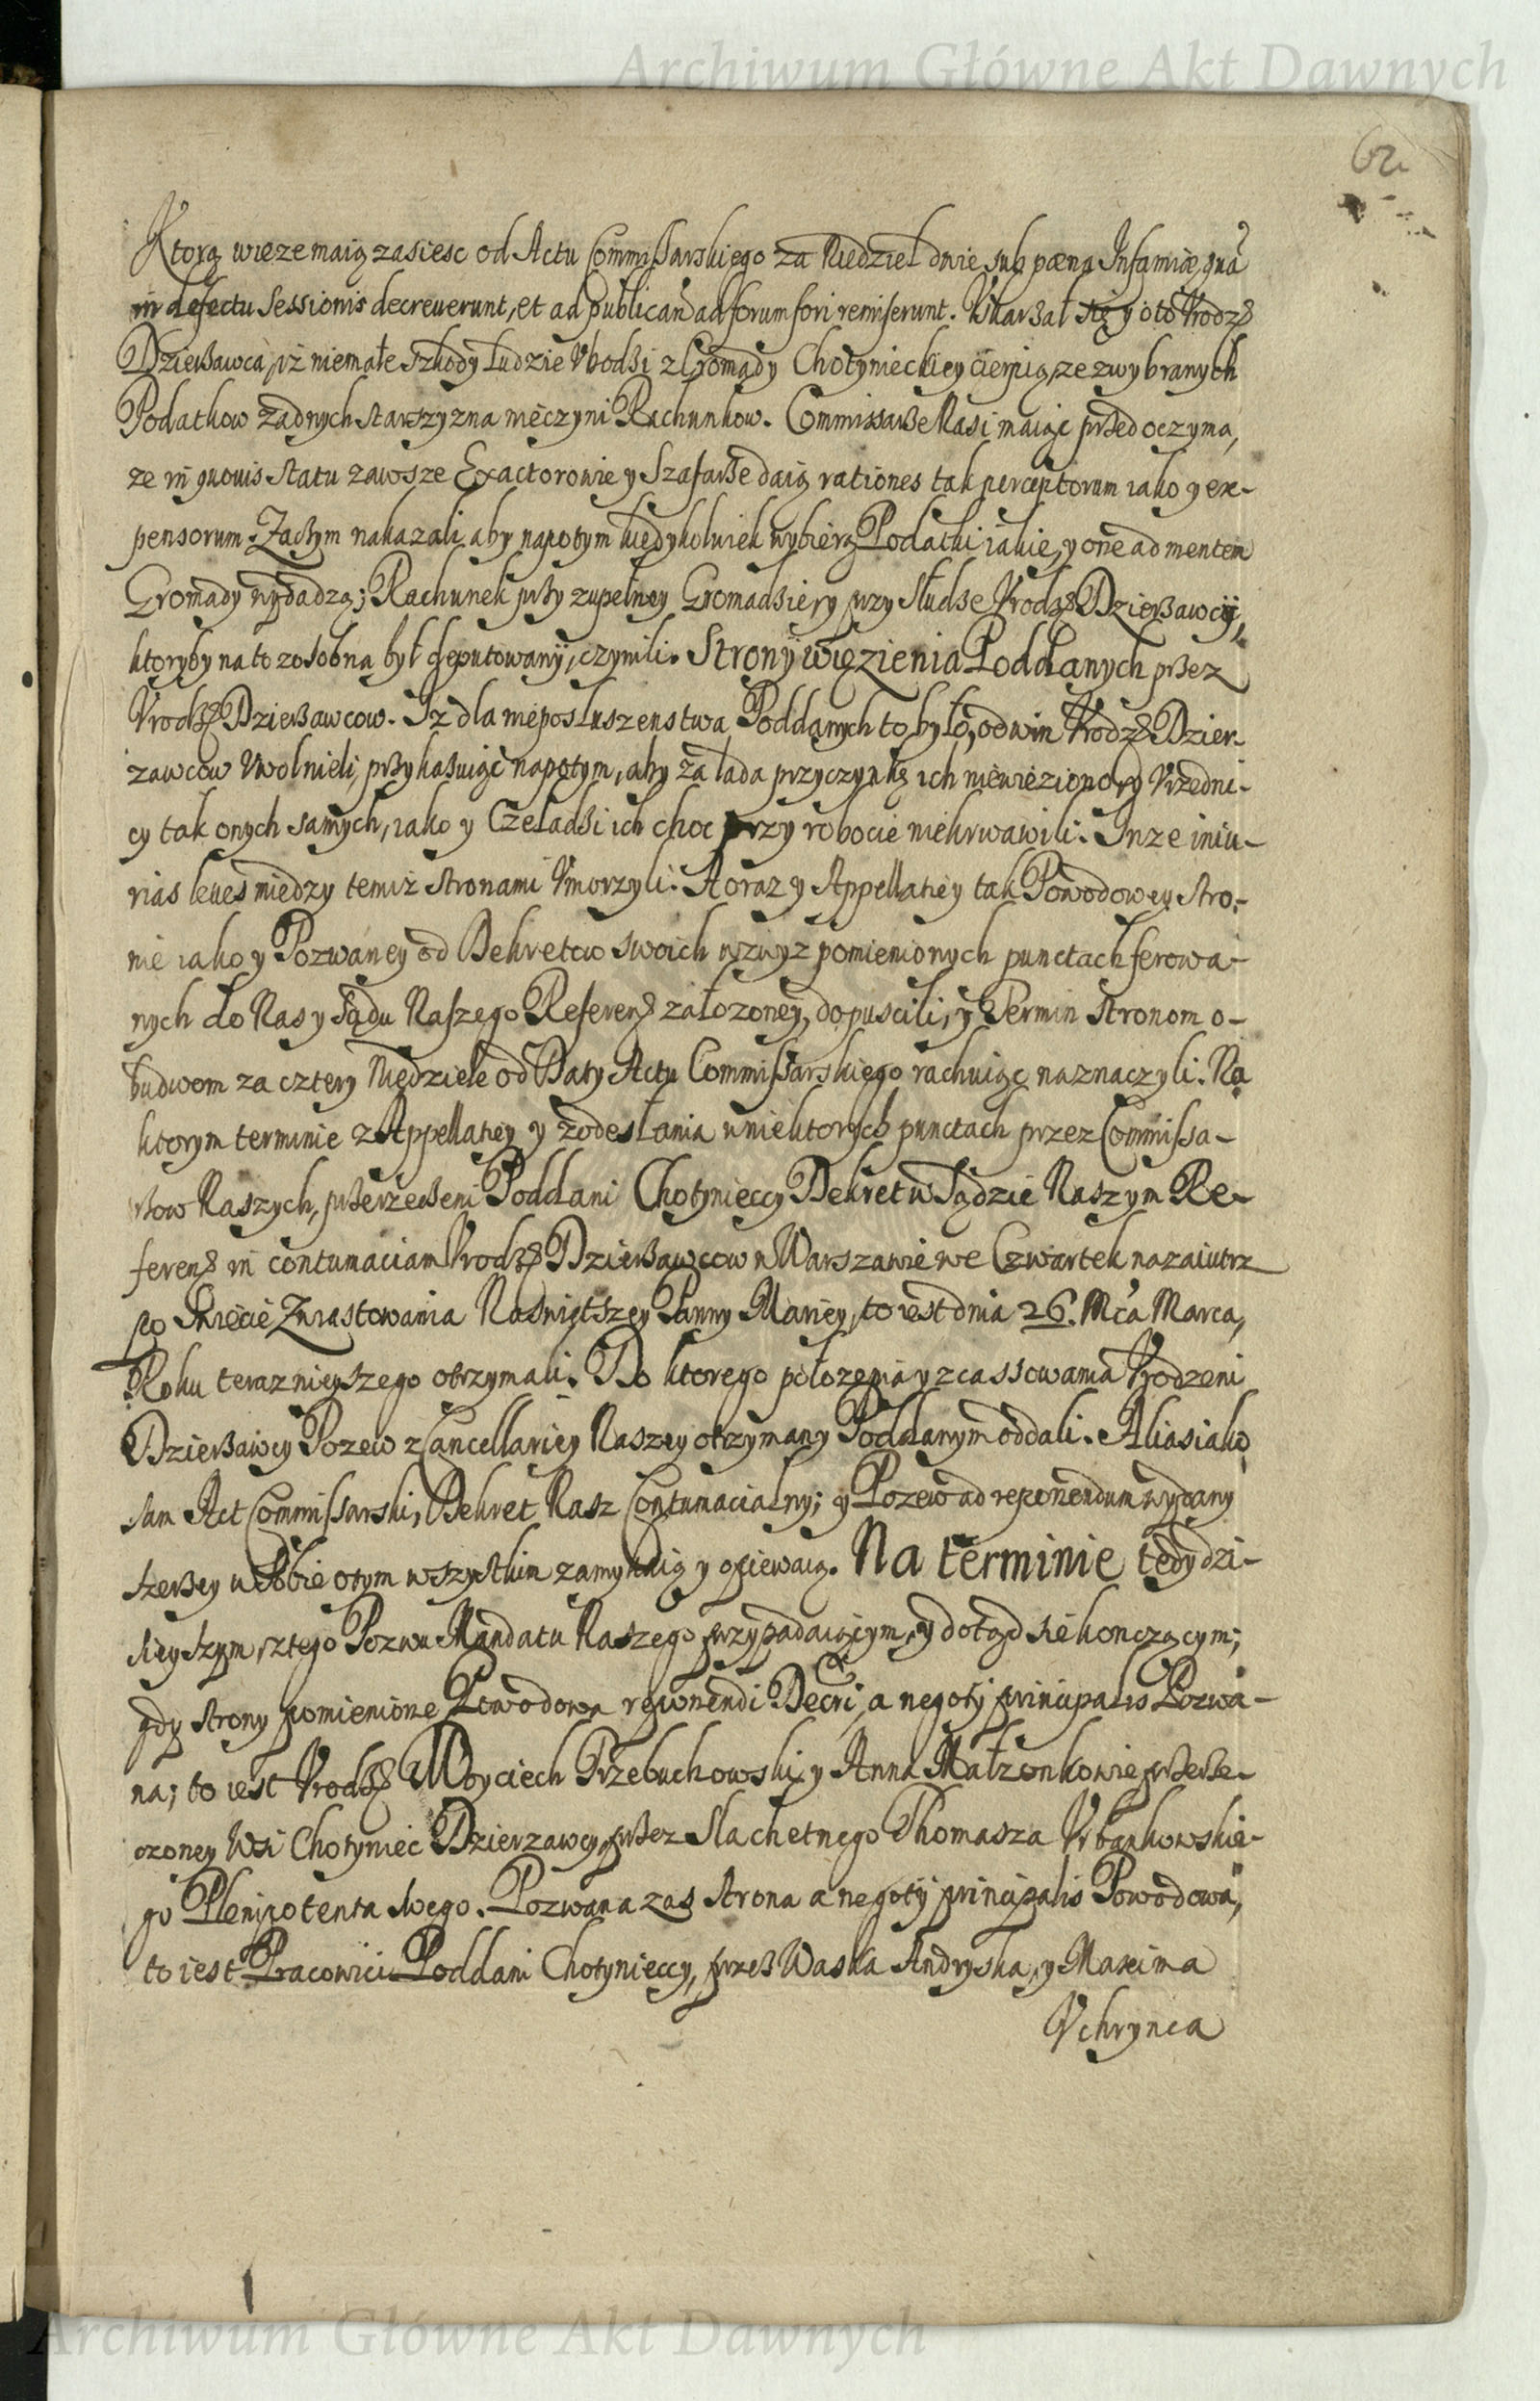 Archiwum Główne Akt Dawnych
62
Ktorą wieze maią zasiesc od Actu Commissarskiego za Niedziel dwie sub pæna Infamiæ, quã
in defectu Sessionis decreuerunt, et ad publican̄ ad forum fori remiserunt. Vskarzał się y o to Vrodz
Dzierżawca, iż niemałe szkody Ludzie Vbodzi z Gromady Chotynieckiey cierpią, ze z wybranych
Podatkow zadnych starszyzna nieczyni Rachunkow. Commissarze Nasi maiąc przed oczyma,
ze in quouis statu zawsze Exactorowie y Szafarze daią rationes tak perceptorum iako y ex-
pensorum. Zaczym nakazali, aby napotym kiedykolwiek wybierą Podatki iakie, y one ad mentem
Gromady wydadzą; Rachunek przy zupełney Gromadzie y przy Słudze Vrodz Dzierżawcy,
ktoryby na to zosobna był deputowany, czynili. Strony więzienia Poddanych przez
Vrodz Dzierżawcow. Iż dla nieposłuszenstwa Poddanych to było, od win Vrodz Dzier-
zawcow Vwolnieli, przykazuiąc napotym, aby za lada przyczynką ich niewięziono, y Vrzedni-
cy tak onych samych, iako y Czeladzi ich choc przy robocie niekrwawili. Insze iniu-
rias leues miedzy temiż stronami Vmorzyli. A oraz y Appellatiey tak Powodowey stro-
nie iako y Pozwaney od Dekretow swoich wzwyz pomienionych punctach ferowa-
nych do Nas y Sądu Naszego Referen załozoney, dopuscili, y Termin stronom o-
budwom za cztery Niedziele od Daty Actu Commissarskiego rachuiąc naznaczyli. Na
ktorym terminie z Appellatiey y zodesłania w niektorych punctach przez Commissa-
rzow Naszych, przerzeczeni Poddani Chotynieccy Dekret w Sądzie Naszym Re-
feren in contumaciam Vrodz Dzierżawcow w Warszawie we Czwartek nazaiutrz
po Swięcie Zwiastowania Naswiętszey Panny Mariey, to iest dnia 26. Mca Marca,
Roku teraznieyszego otrzymali. Do ktorego połozenia y zcassowania Vrodzeni
Dzierżawcy Pozew z Cancellariey Naszey otrzymany Poddanym oddali. Alias iako
sam Act Commissarski, Dekret Nasz Contumacialny; y Pozew ad reponendum wydany
szerzey w Sobie o tym wszystkim zamykaią y opiewaią. Na terminie tedy dzi-
sieyszym, z tego Pozwu Mandatu Naszego przypadaiącym, y dotąd się konczącym;
gdy strony pomienione Powodowa reponendi Decri, a negotij principalis Pozwa-
na; to iest Vrodz Woyciech Przebuchowski y Anna Małzonkowie przerze-
czoney Wsi Chotyniec Dzierzawcy, przez Slachetnego Thomasza Vrbankowskie-
go Plenipotenta swego. Pozwana zas strona a negotij principalis Powodowa,
to iest Pracowici Poddani Chotynieccy, przez Waska Andryska, y Maxima
Vchrynca
Archiwum Główne Akt Dawnych